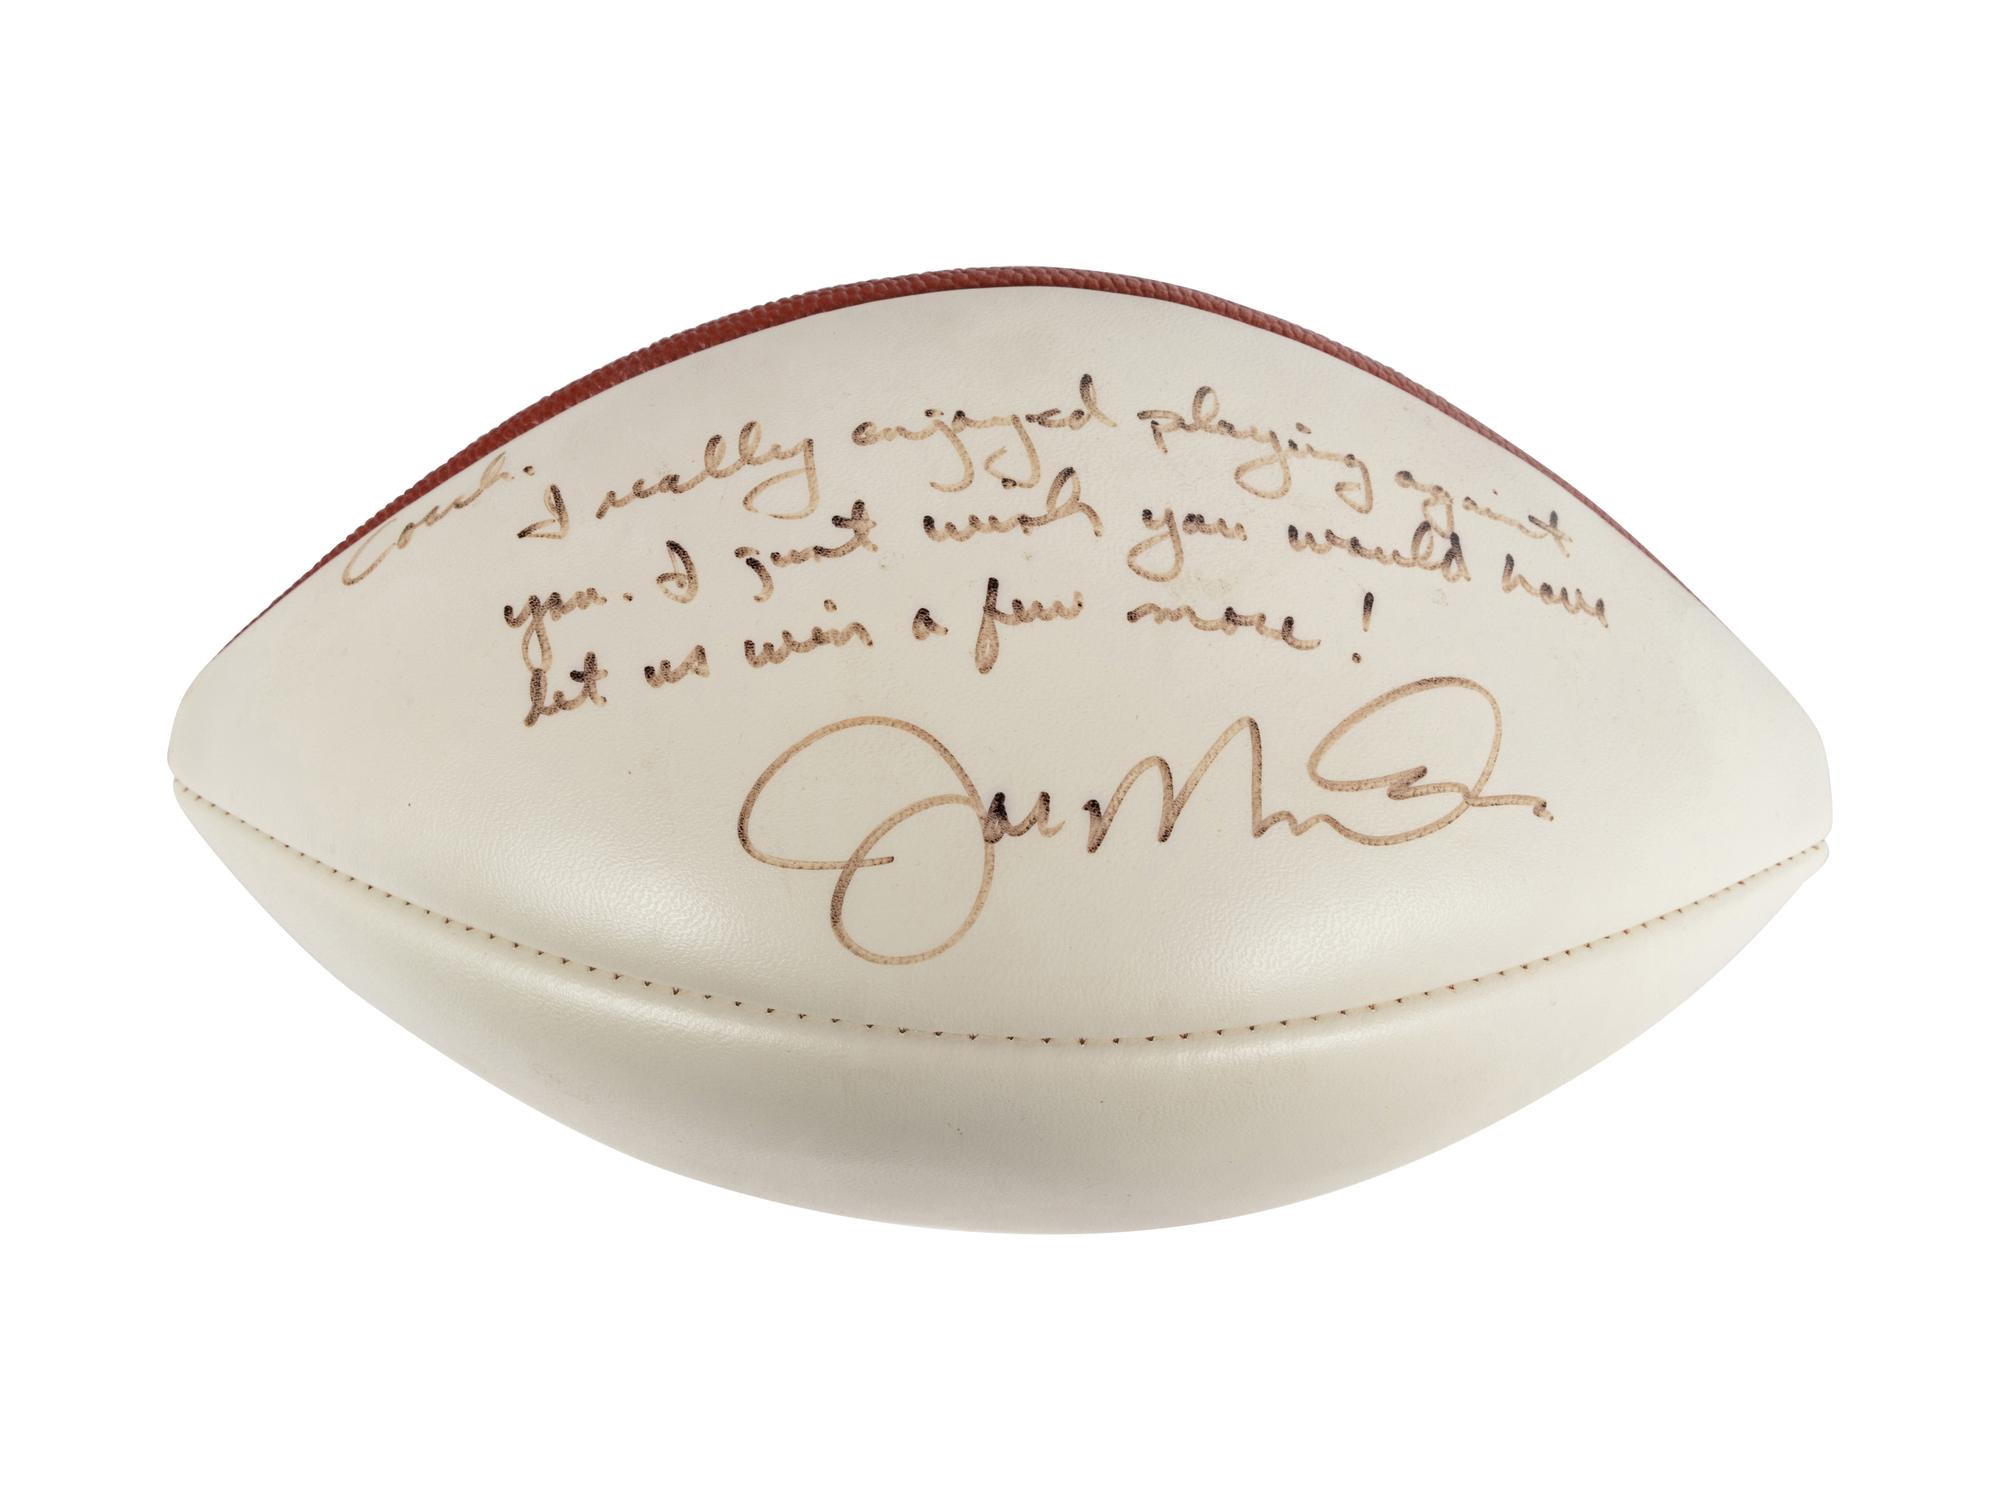 Coach:
I really enjoyed playing against
you. I just wish you would have
let us win a few more!
Joe Montana